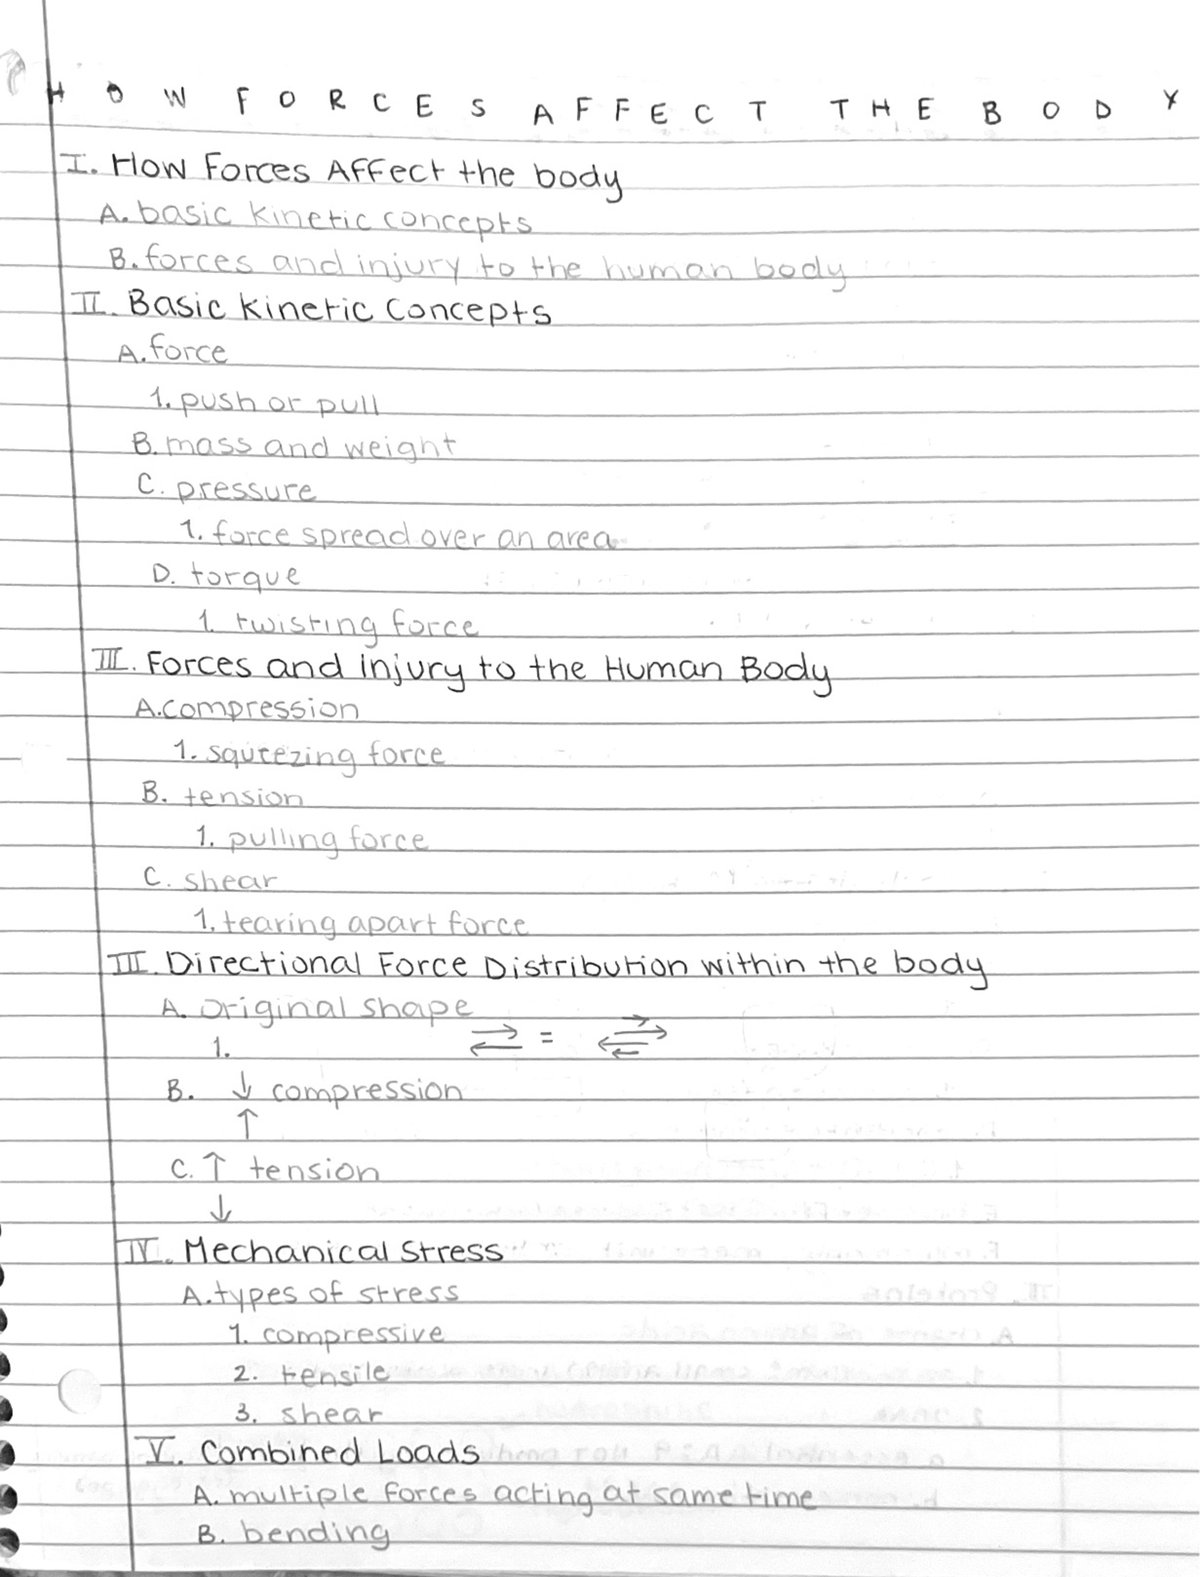 HOW FORCES AFFECT THE BODY
I. How Forces Affect the body
A. basic kinetic concepts
B. forces and injury to the human body
II. Basic Kinetic Concepts
A. force
1. push or pull
B. mass and weight
C. pressure
1. force spread over an area
D. torque
1. twisting force
III. Forces and injury to the Human Body
A. compression
1. squeezing force
B. tension
1. pulling force
C. shear
1. tearing apart force
III. Directional Force Distribution within the body
A. original shape
1. ⇄ =
B. ↓ compression
↑
C. ↑ tension
↓
IV. Mechanical Stress
A. types of stress
1. compressive
2. tensile
3. shear
V. Combined Loads
A. multiple forces acting at same time
B. bending